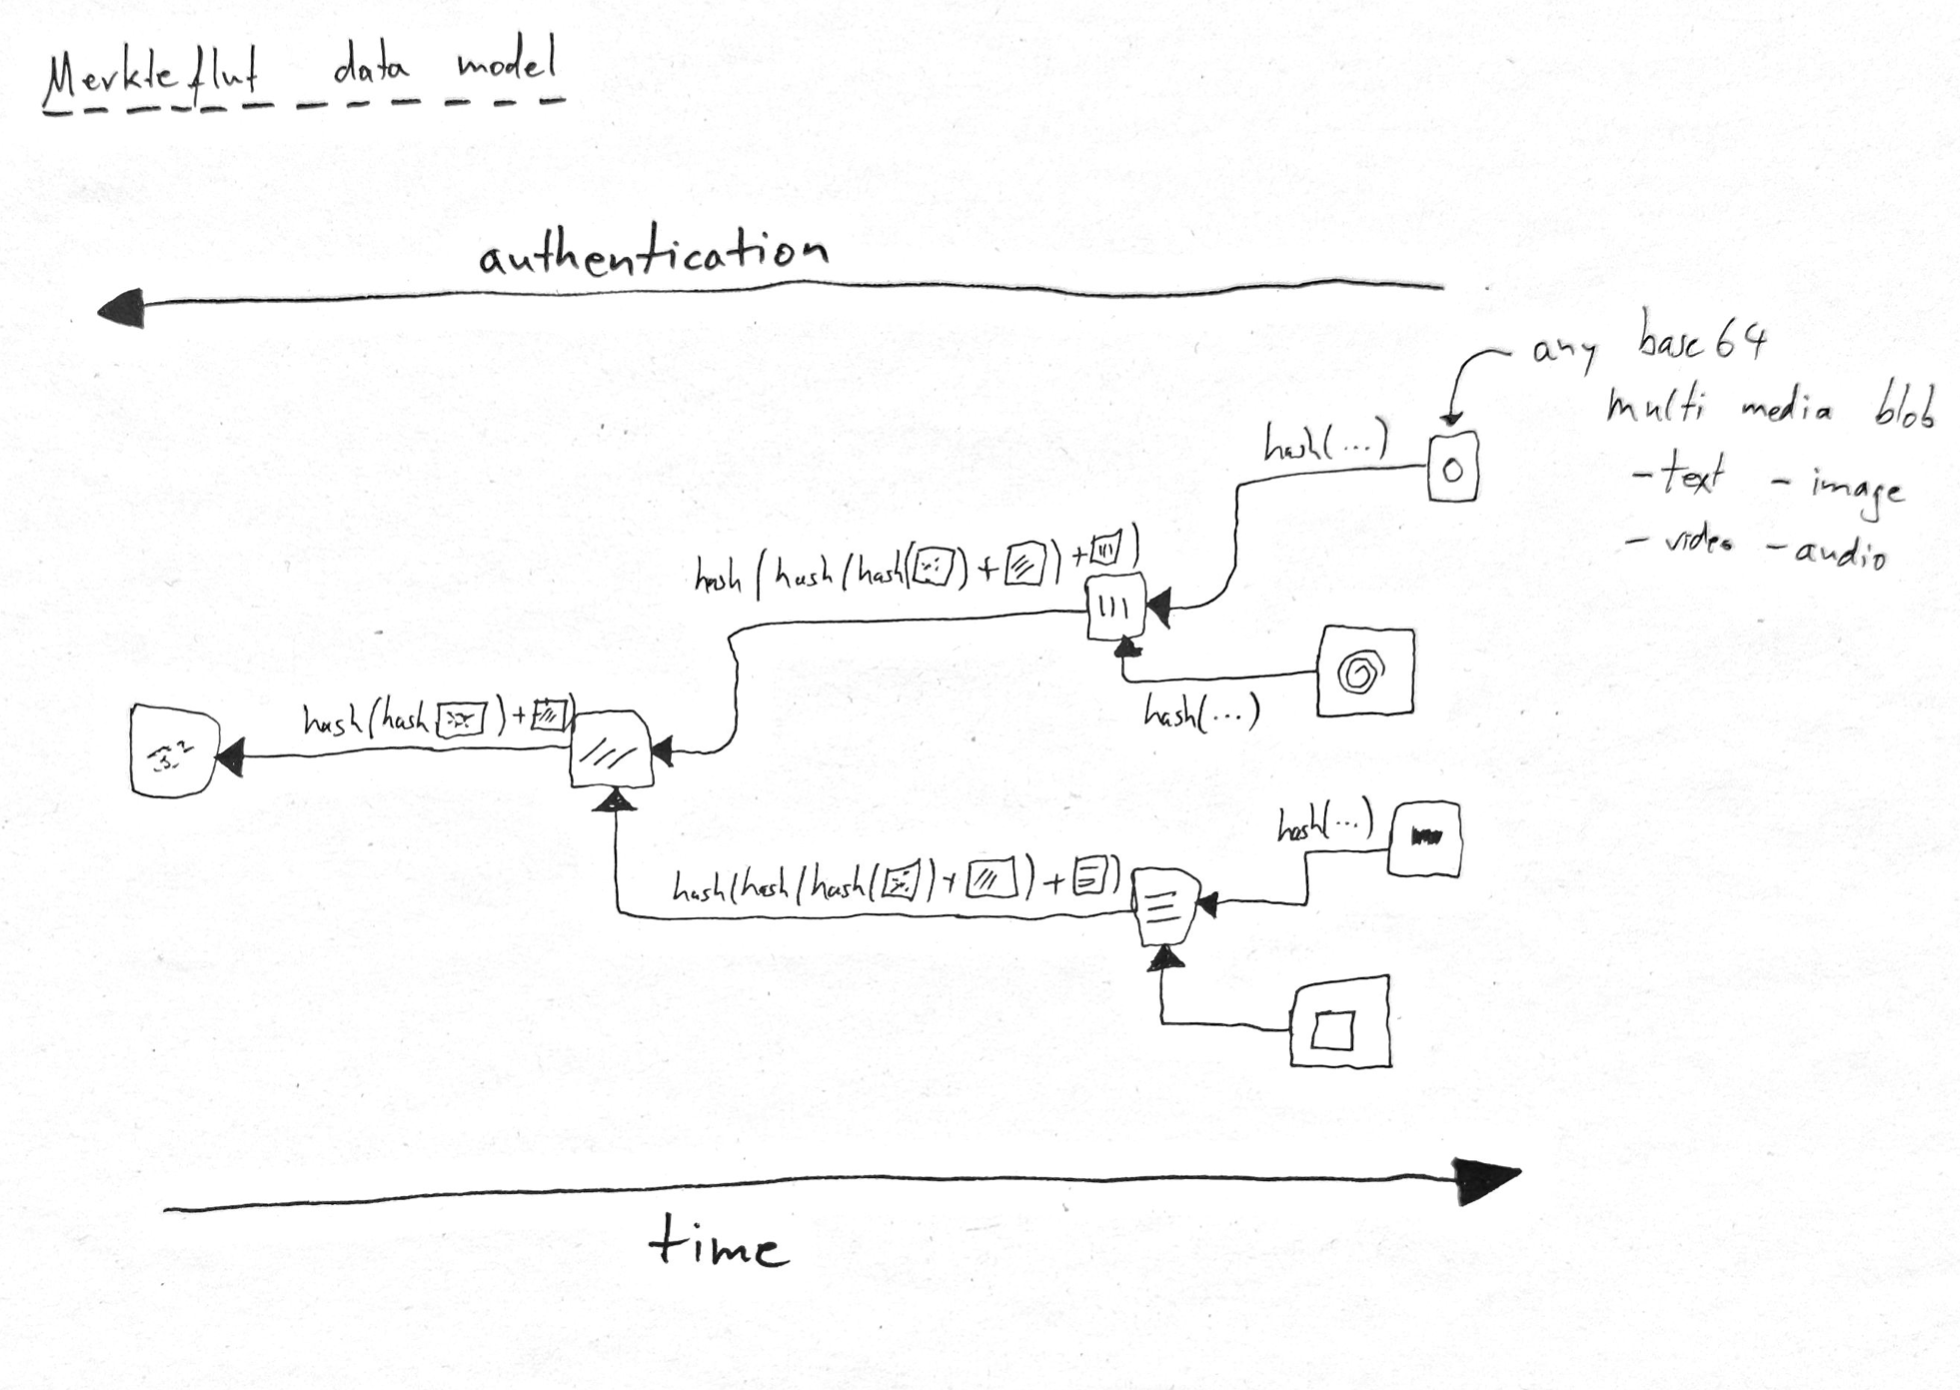 Merkleflut data model
authentication
any base64
multi media blob
- text - image
- video - audio
hash(...)
hash(hash(hash( ) + ) + )
hash(...)
hash(hash ) + )
hash(...)
hash(hash(hash( ) + ) + )
time